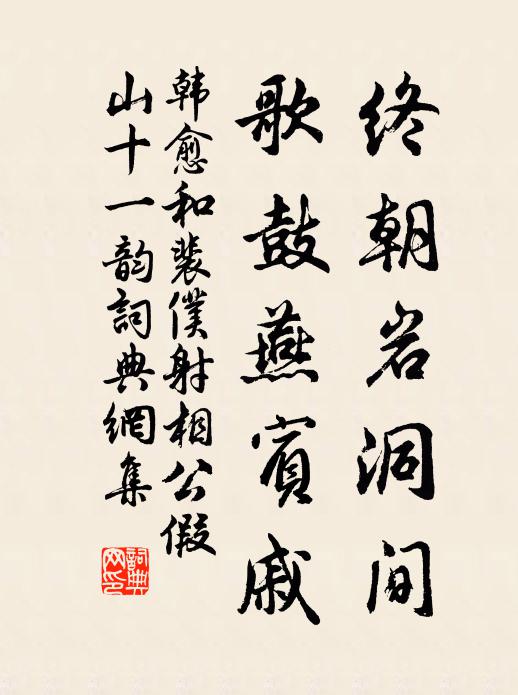 终朝岩洞间
歌鼓燕宾戚
韩愈和裴仆射相公假
山十一韵词典网集
词典
网印